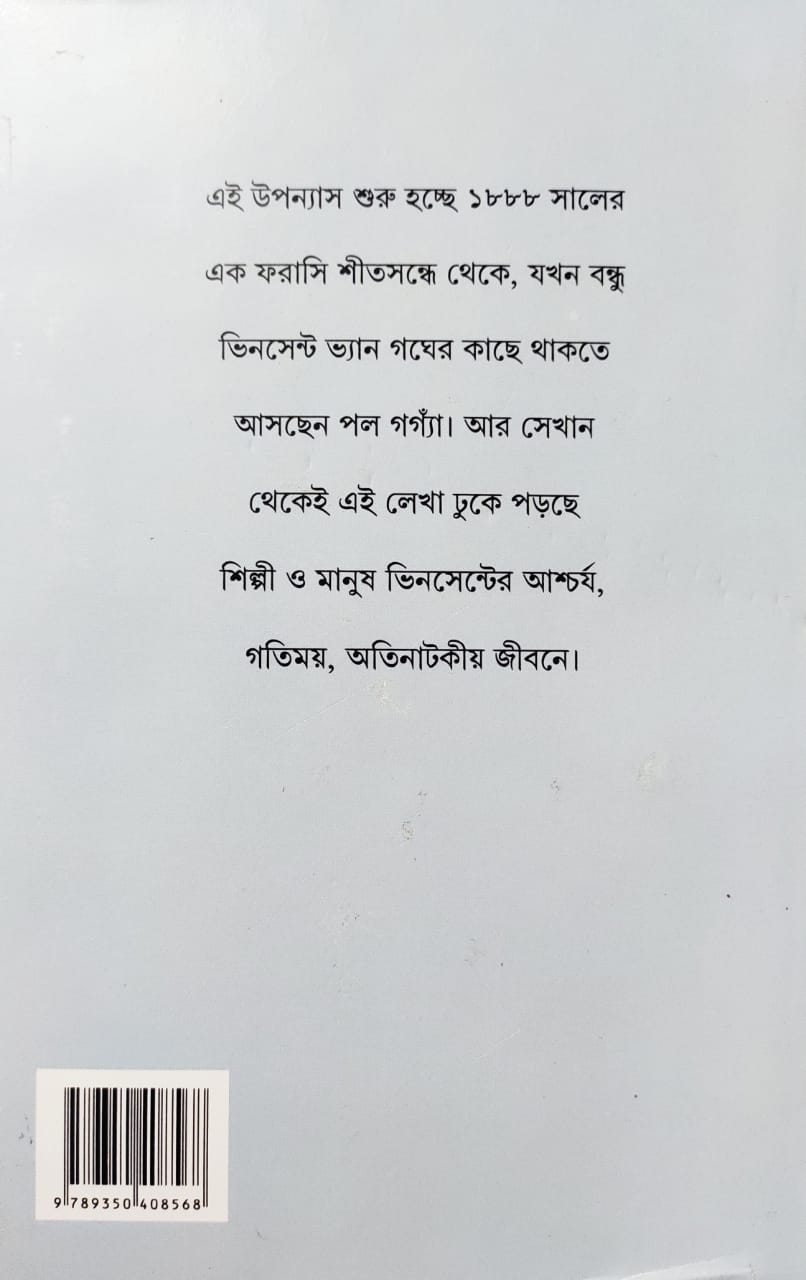 এই উপন্যাস শুরু হচ্ছে ১৮৮৮ সালের
এক ফরাসি শীতসন্ধে থেকে, যখন বন্ধু
ভিনসেন্ট ভ্যান গঘের কাছে থাকতে
আসছেন পল গগ্যাঁ। আর সেখান
থেকেই এই লেখা ঢুকে পড়ছে
শিল্পী ও মানুষ ভিনসেন্টের আশ্চর্য,
গতিময়, অতিনাটকীয় জীবনে।
9 789350 408568